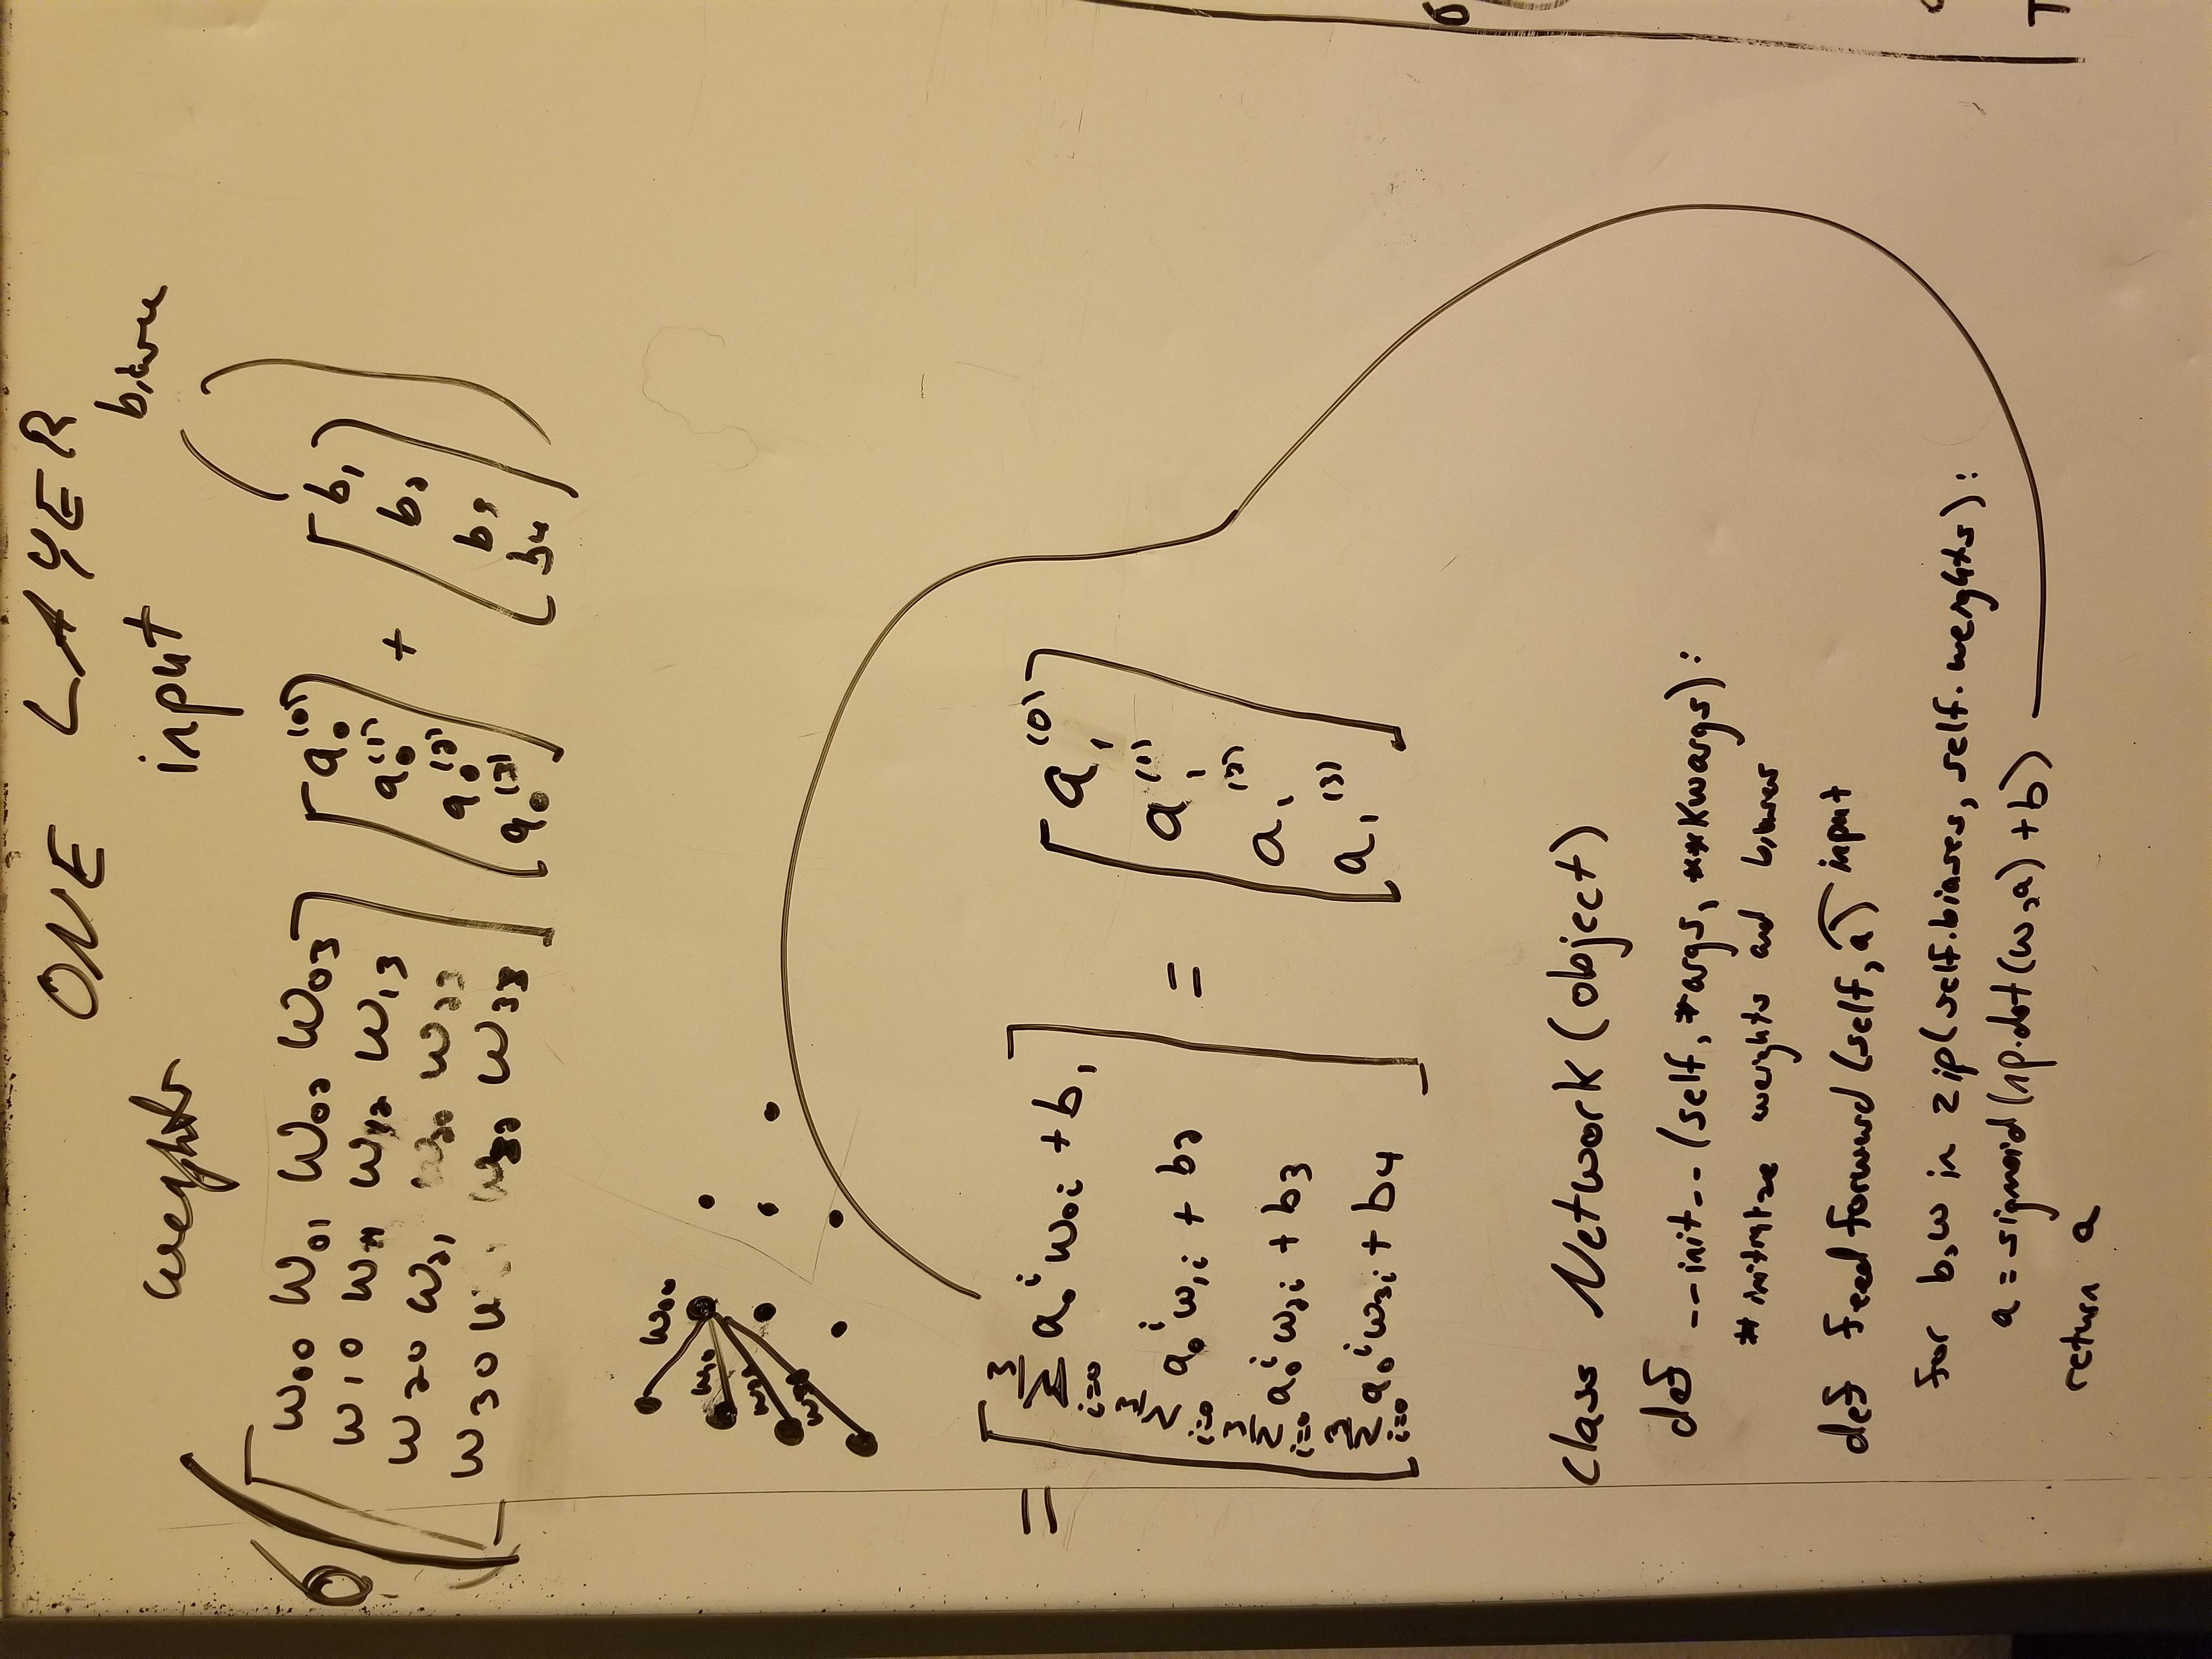 ONE LAYER
weights input biases
σ ( [ w00 w01 w02 w03 ] [ a0^(0) ] + [ b1 ] )
w10 w11 w12 w13 a0^(1) b2
w20 w21 w22 w23 a0^(2) b3
w30 w32 w33 a0^(3) b4
w00
w10
w20
w30
= [ Σ i=0 3 a0^i w0i + b1 ] = [ a1^(0) ]
Σ i=0 3 a0^i w1i + b2 a1^(1)
Σ i=0 3 a0^i w2i + b3 a1^(2)
Σ i=0 3 a0^i w3i + b4 a1^(3)
class Network (object)
def __init__ (self, *args, **kwargs):
# initialize weights and biases
def feedforward (self, a) input
for b,w in zip(self.biases, self.weights):
a = sigmoid(np.dot(w,a)+b)
return a